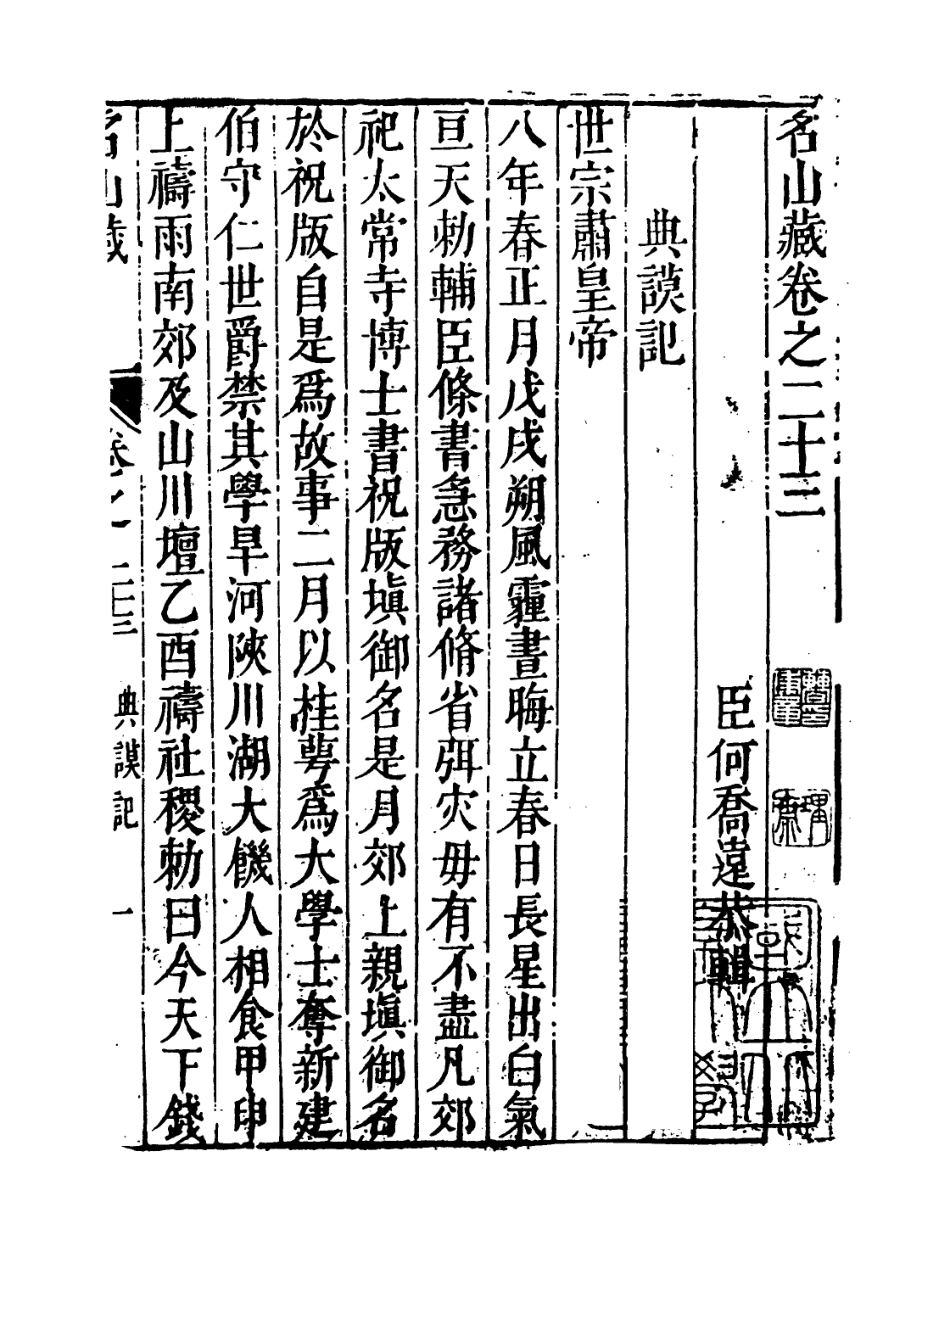 名山藏卷之二十三
臣何喬遠恭輯
典謨記
世宗肅皇帝
八年春正月戊戌朔風霾晝晦立春日長星出白氣
亘天勅輔臣條書急務諸脩省弭灾毋有不盡凡郊
祀太常寺博士書祝版填御名是月郊上親填御名
於祝版自是爲故事二月以桂萼爲大學士奪新建
伯守仁世爵禁其學旱河陝川湖大饑人相食甲申
上禱雨南郊及山川壇乙酉禱社稷勅曰今天下錢
名山藏 卷之二十三 典謨記 一